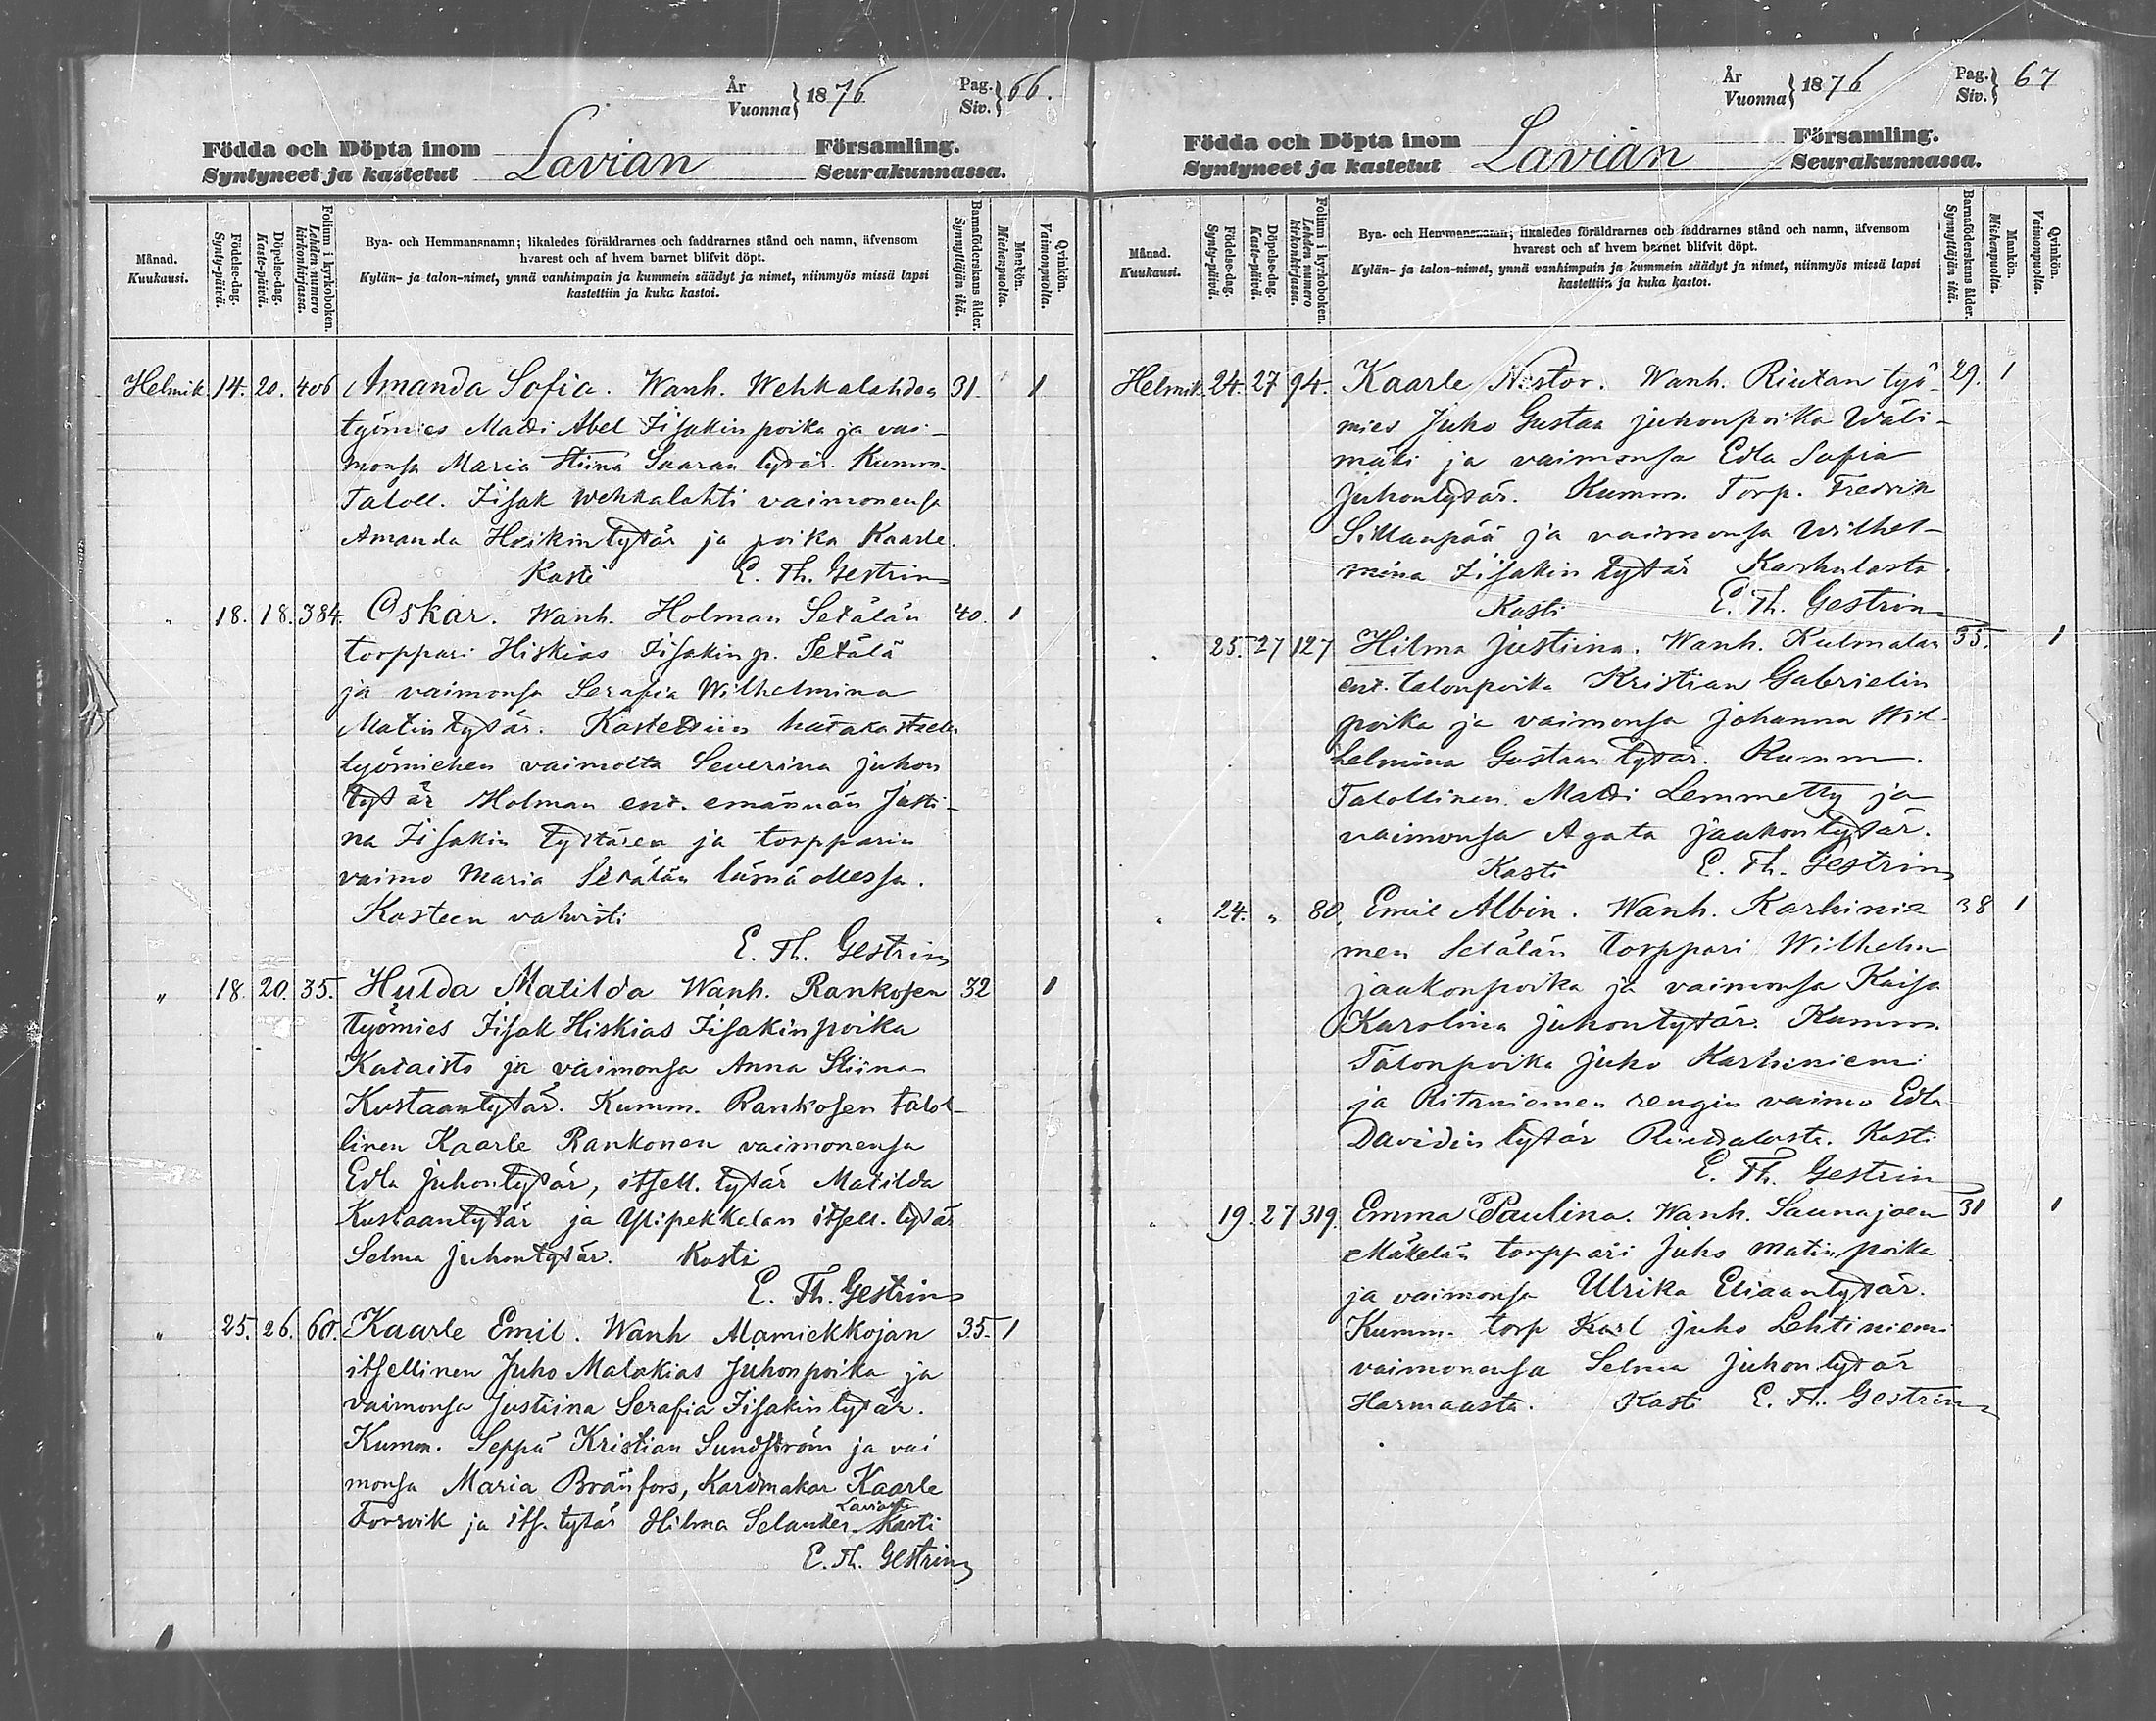 År
Vuonna} 1876 Pag.
Siv.} 66.
Födda och Döpta inom Församling.
Syntyneet ja kastetut Lavian Seurakunnassa.
Månad.
Kuukausi.
Födelse-dag.
Synty-päivä.
Döpelse-dag.
Kaste-päivä.
Folium i kyrkoboken.
Lehden numero
kirkonkirjassa.
Bya- och Hemmansnamn; likaledes föräldrarnes och faddrarnes stånd och namn, äfvensom
hvarest och af hvem barnet blifvit döpt.
Kylän- ja talon-nimet, ynnä vanhimpain ja kummein säädyt ja nimet, niinmyös missä lapsi
kastettiin ja kuka kastoi.
Barnaföderskans ålder.
Synnyttäjän ikä.
Mankön.
Miehenpuolta.
Qvinkön.
Vaimonpuolta.
Helmik. 14. 20. 406 Amanda Sofia. Wanh. Wehkalahden 31. 1
työmies Matti Abel Iisakin poika ja vai-
monsa Maria Stiina Saaran tytär. Kumm.
Taloll. Iisak Wehkalahti vaimonensa
Amanda Heikintytär ja poika Kaarle.
Kasti E. Th. Gestrin
" 18. 18. 384. Oskar. Wanh. Holman Setälän 40. 1
torppari Hiskias Iisakin p. Setälä
ja vaimonsa Serafia Wilhelmina
Matintytär. Kastettiin hätäkasteella
työmiehen vaimolta Severina Juhon
tytär Holman ent. emännän Justi-
na Iisakin tyttären ja torpparin
vaimo Maria Setälän läsnä ollessa.
Kasteen vahvisti
E. Th. Gestrin
" 18. 20. 35. Hulda Matilda Wanh. Rankosen 32 1
työmies Iisak Hiskias Iisakinpoika
Kataisto ja vaimonsa Anna Stiina
Kustaantytär. Kumm. Rankosen talol-
linen Kaarle Rankonen vaimonensa
Edla Juhontytär, itsell. tytär Matilda
Kustaantytär ja Ylipekkalan itsell. tytär
Selma Juhontytär. Kasti
E. Th. Gestrin
" 25. 26. 60. Kaarle Emil. Wanh Alamiekkojan 35. 1
itsellinen Juho Malakias Juhonpoika ja
vaimonsa Justiina Serafia Iisakintytär.
Kumm. Seppä Kristian Sundström ja vai
monsa Maria Brånfors, Kardmakar Kaarle
Lavialta
Forsvik ja its. tytär Hilma Selander. Kasti
E. Th. Gestrin
År
Vuonna} 1876 Pag.
Siv.} 67
Födda och Döpta inom Församling.
Syntyneet ja kastetut Lavian Seurakunnassa.
Månad.
Kuukausi.
Födelse-dag.
Synty-päivä.
Döpelse-dag.
Kaste-päivä.
Folium i kyrkoboken.
Lehden numero
kirkonkirjassa.
Bya- och Hemmansnamn; likaledes föräldrarnes och faddrarnes stånd och namn, äfvensom
hvarest och af hvem barnet blifvit döpt.
Kylän- ja talon-nimet, ynnä vanhimpain ja kummein säädyt ja nimet, niinmyös missä lapsi
kastettiin ja kuka kastoi.
Barnaföderskans ålder.
Synnyttäjän ikä.
Mankön.
Miehenpuolta.
Qvinkön.
Vaimonpuolta.
Helmik. 24. 27 94. Kaarle Nestor. Wanh. Riutan työ- 29. 1
mies Juho Gustaa Juhonpoika Wäli-
mäki ja vaimonsa Edla Sofia
Juhontytär. Kumm. Torp. Fredrik
Sillanpää ja vaimonsa Wilhel-
mina Iisakin tytär Karhulasta.
Kasti E. Th. Gestrin
" 25. 27 127 Hilma Justiina. Wanh. Kulmalan 35. 1
ent. talonpoika Kristian Gabrielin
poika ja vaimonsa Johanna Wil-
helmina Gustaan tytär. Kumm.
Talollinen Matti Lemmetty ja
vaimonsa Agata Jaakontytär.
Kasti E. Th. Gestrin
" 24. " 80. Emil Albin. Wanh. Karhinie 38 1
men Setälän torppari Wilhelm
Jaakonpoika ja vaimonsa Kaisa
Karolina Juhontytär. Kumm.
Talonpoika Juho Karhiniemi
ja Ritaniemen rengin vaimo Edla
Davidin tytär Kasti
E. Th. Gestrin
" 19. 27 319. Emma Paulina. Wanh. Saunajoen 31 1
Mäkelän torppari Juho Matinpoika
ja vaimonsa Ulrika Eliaantytär.
Kumm. torp Karl Juho Lehtiniemi
vaimonensa Selma Juhontytär
Harmaasta. Kasti E. Th. Gestrin